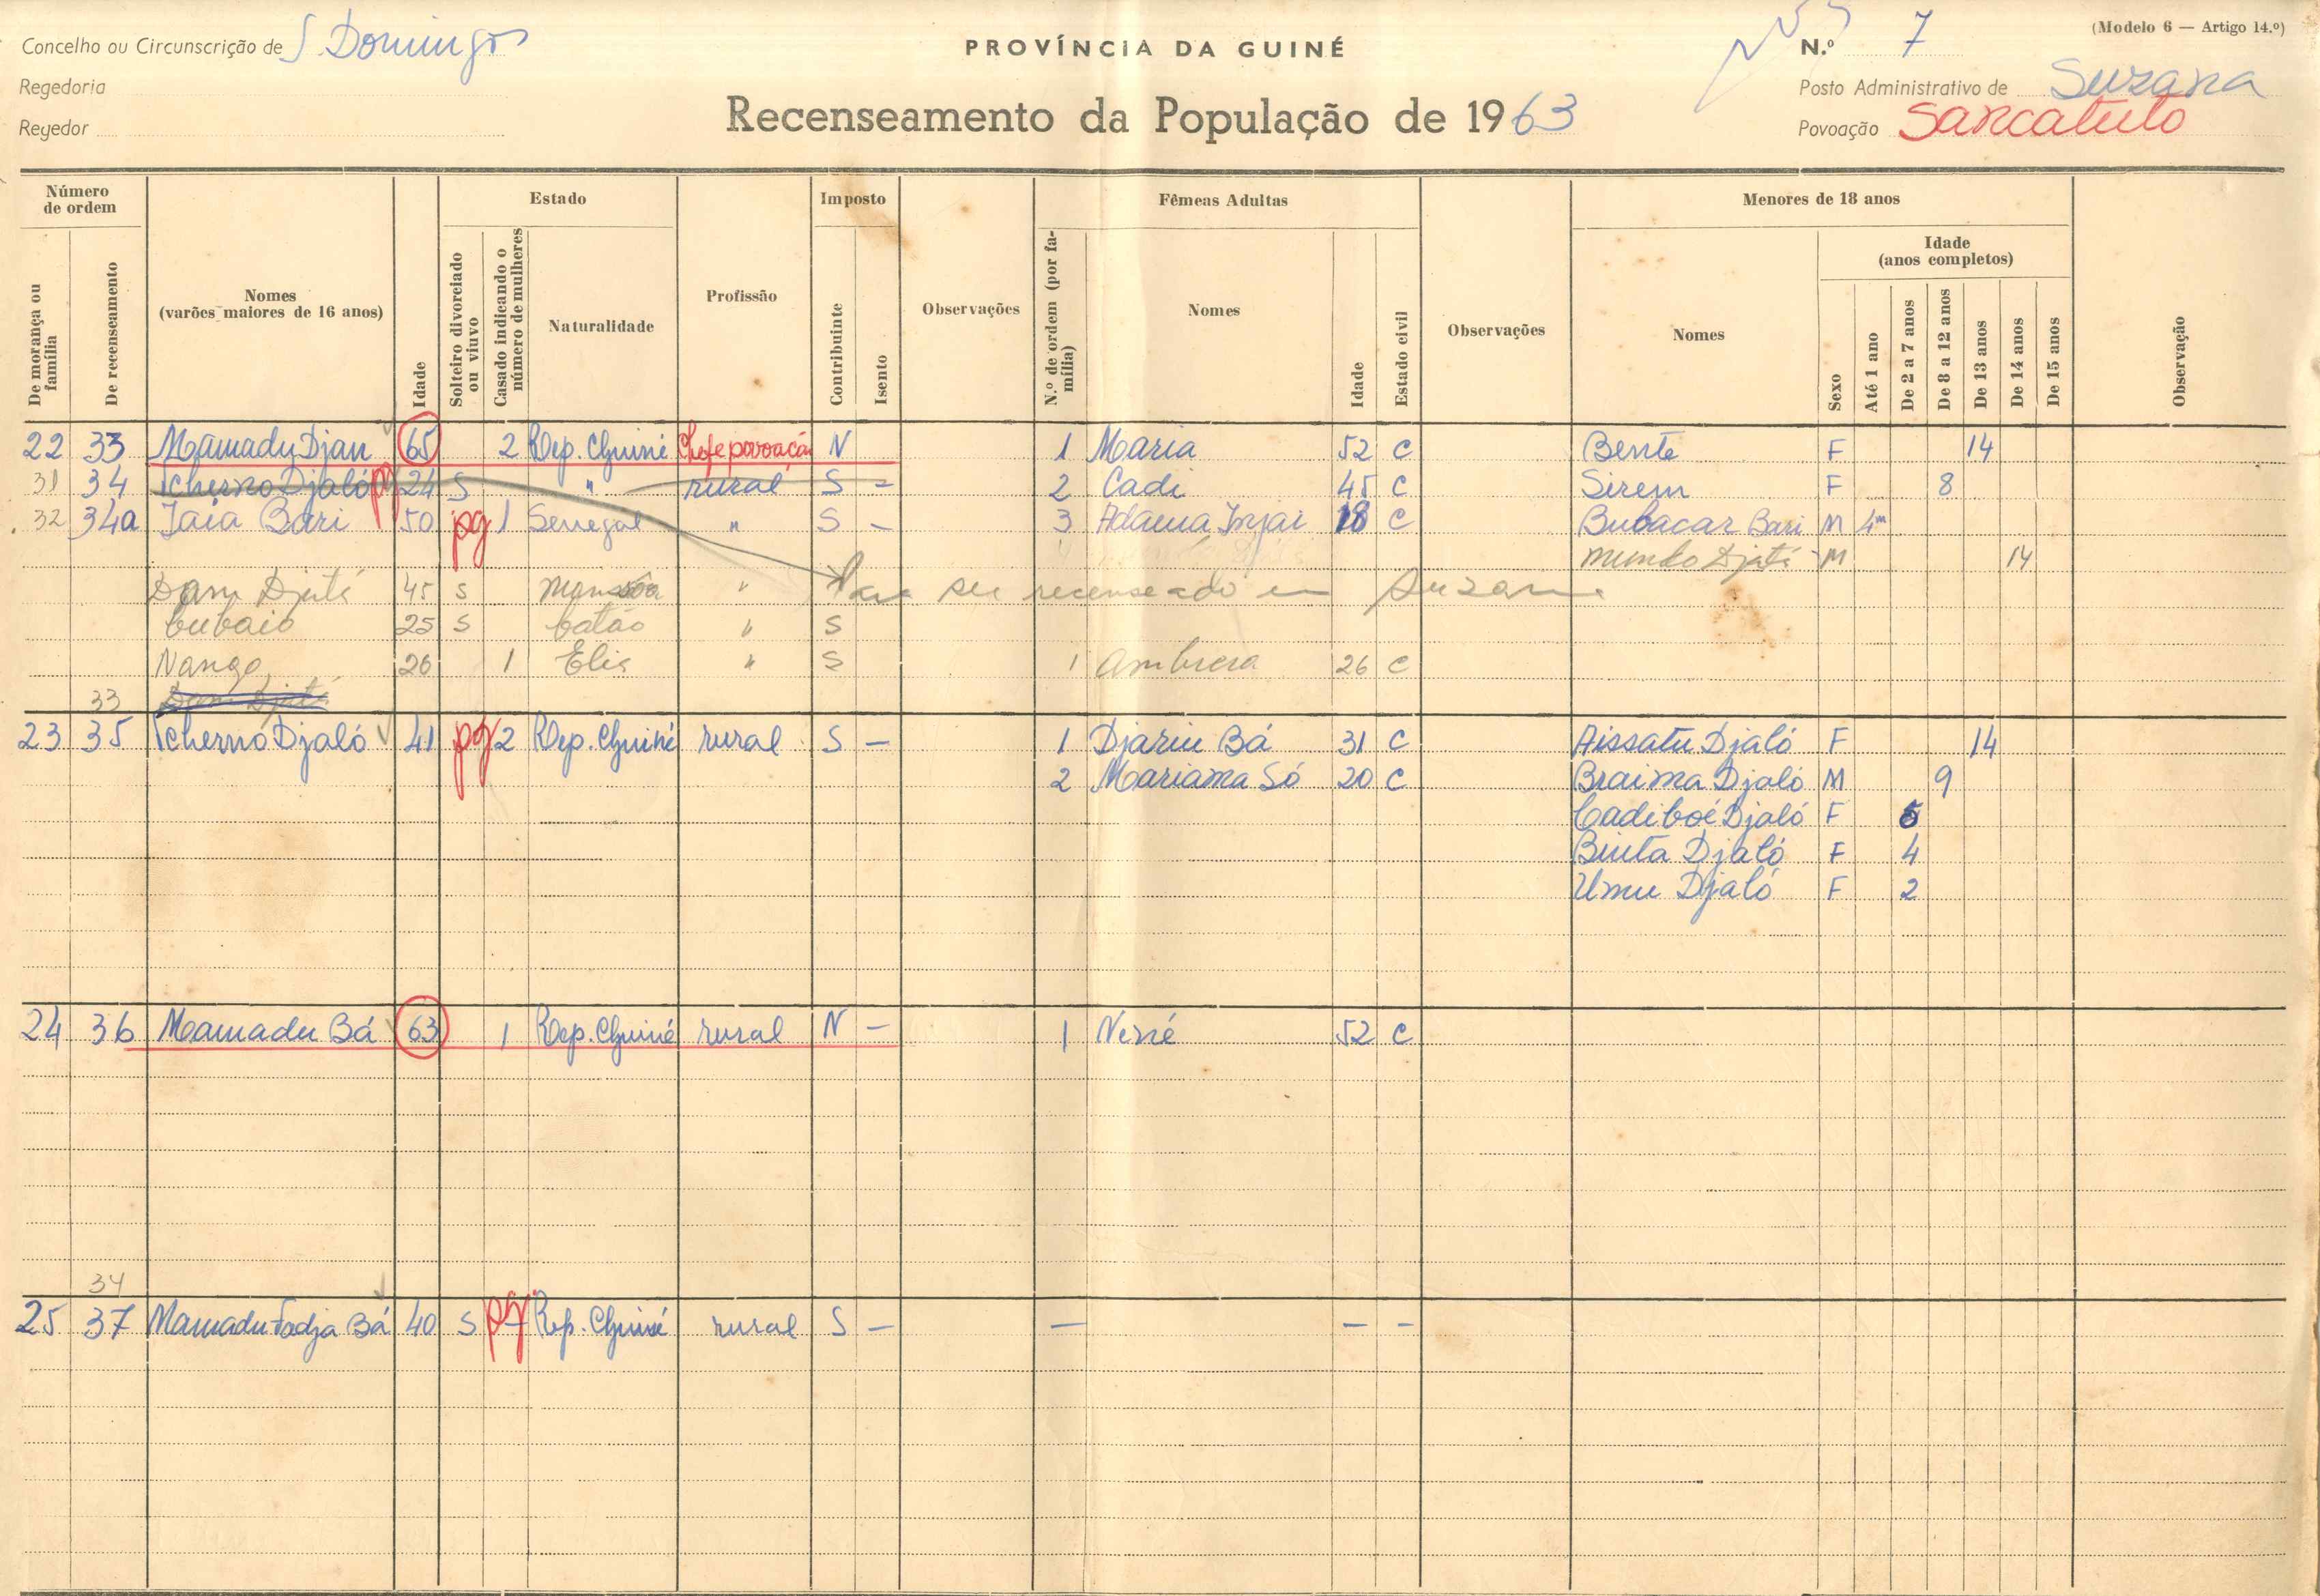 Concelho ou Circunscrição de S Domingos
PROVÍNCIA DA GUINÉ
N.º 7
(Modelo 6 — Artigo 14.º)
Regedoria
Posto Administrativo de Suzana
Regedor
Recenseamento da População de 1963
Povoação Sarcatuto
Número de ordem
Estado
Imposto
Fêmeas Adultas
Menores de 18 anos
De morança ou família
De recenseamento
Nomes (varões maiores de 16 anos)
Idade
Solteiro divorciado ou viuvo
Casado indicando o número de mulheres
Naturalidade
Profissão
Contribuinte
Isento
Observações
N.º de ordem (por família)
Nomes
Idade
Estado civil
Observações
Nomes
Sexo
Idade (anos completos)
Até 1 ano
De 2 a 7 anos
De 8 a 12 anos
De 13 anos
De 14 anos
De 15 anos
Observação
22 33 Mamadu Djan 65 2 Rep. Guiné Chefe povoação N 1 Maria 52 C Bente F 14
31 34 Tcherno Djaló pg 24 S " rural S - 2 Cadi 45 C Sirem F 8
32 34a Iaia Bari 50 pg 1 Senegal " S - 3 Adama Injai 18 C Bubacar Bari M 4m
mundo Djatá M 14
Dam Djatá 45 S Mansôa " Para ser recenseado em Suzana
bubaio 25 S Catão " S
Nango 26 1 Elia " S 1 Ambrera 26 C
33 Dam Djatá
23 35 Tcherno Djaló 41 pg 2 Rep. Guiné rural S - 1 Djariu Bá 31 C Aissatu Djaló F 14
2 Mariama Só 20 C Braima Djaló M 9
Cadiboé Djaló F 6
Binta Djaló F 4
Umu Djaló F 2
24 36 Mamadu Bá 63 1 Rep. Guiné rural N - 1 Nené 52 C
34
25 37 Mamadu Fodja Bá 40 S pg Rep. Guiné rural S - — — —